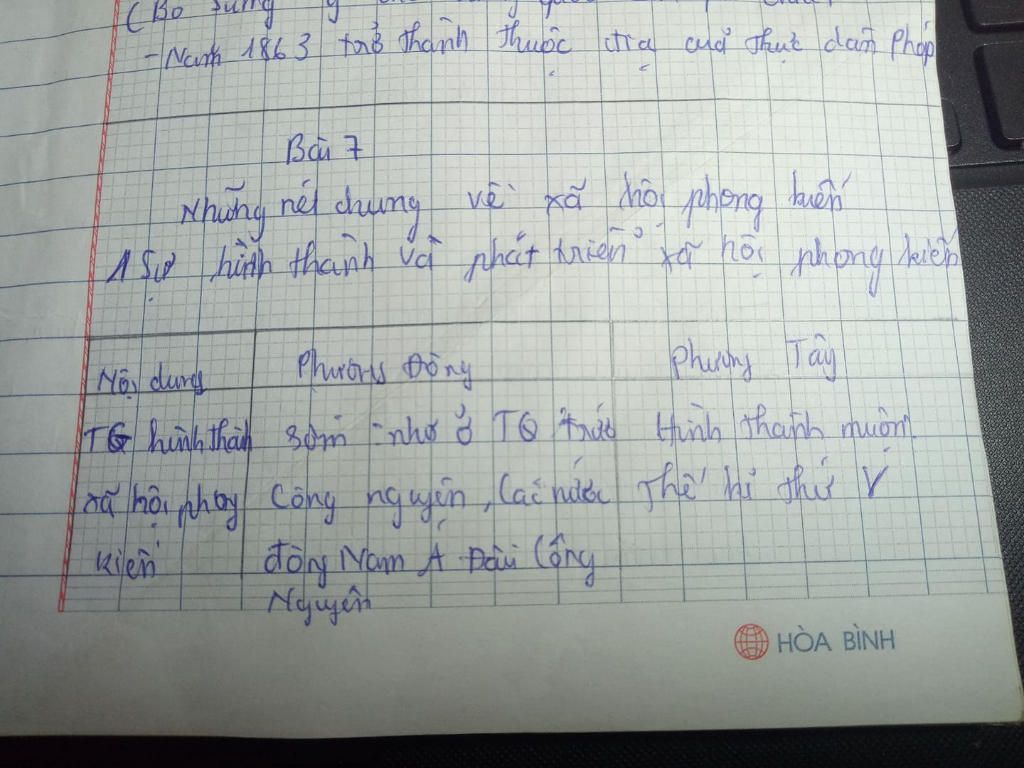 (Bổ sung
- Năm 1863 trở thành thuộc địa của thực dân Pháp
Bài 7
Những nét chung về xã hội phong kiến
1 Sự hình thành và phát triển xã hội phong kiến
Nội dung Phương Đông Phương Tây
TG hình thàh sớm - như ở TQ trước Hình thành muộn
xã hội phog Công nguyên, Các nước Thế kỉ thứ V
kiến đông Nam Á Đầu Công
Nguyên
HÒA BÌNH